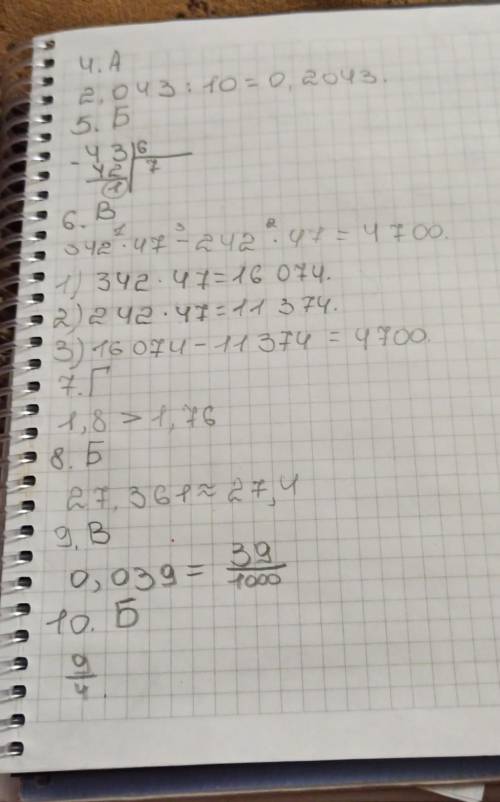 4. А
2,043 : 10 = 0,2043.
5. Б
- 43 | 6
42 | 7
1
6. В
342 · 47 - 242 · 47 = 4700.
1) 342 · 47 = 16 074.
2) 242 · 47 = 11 374.
3) 16 074 - 11 374 = 4700.
7. Г
1,8 > 1,76
8. Б
27,361 ≈ 27,4
9. В
0,039 = 39/1000
10. Б
9/4